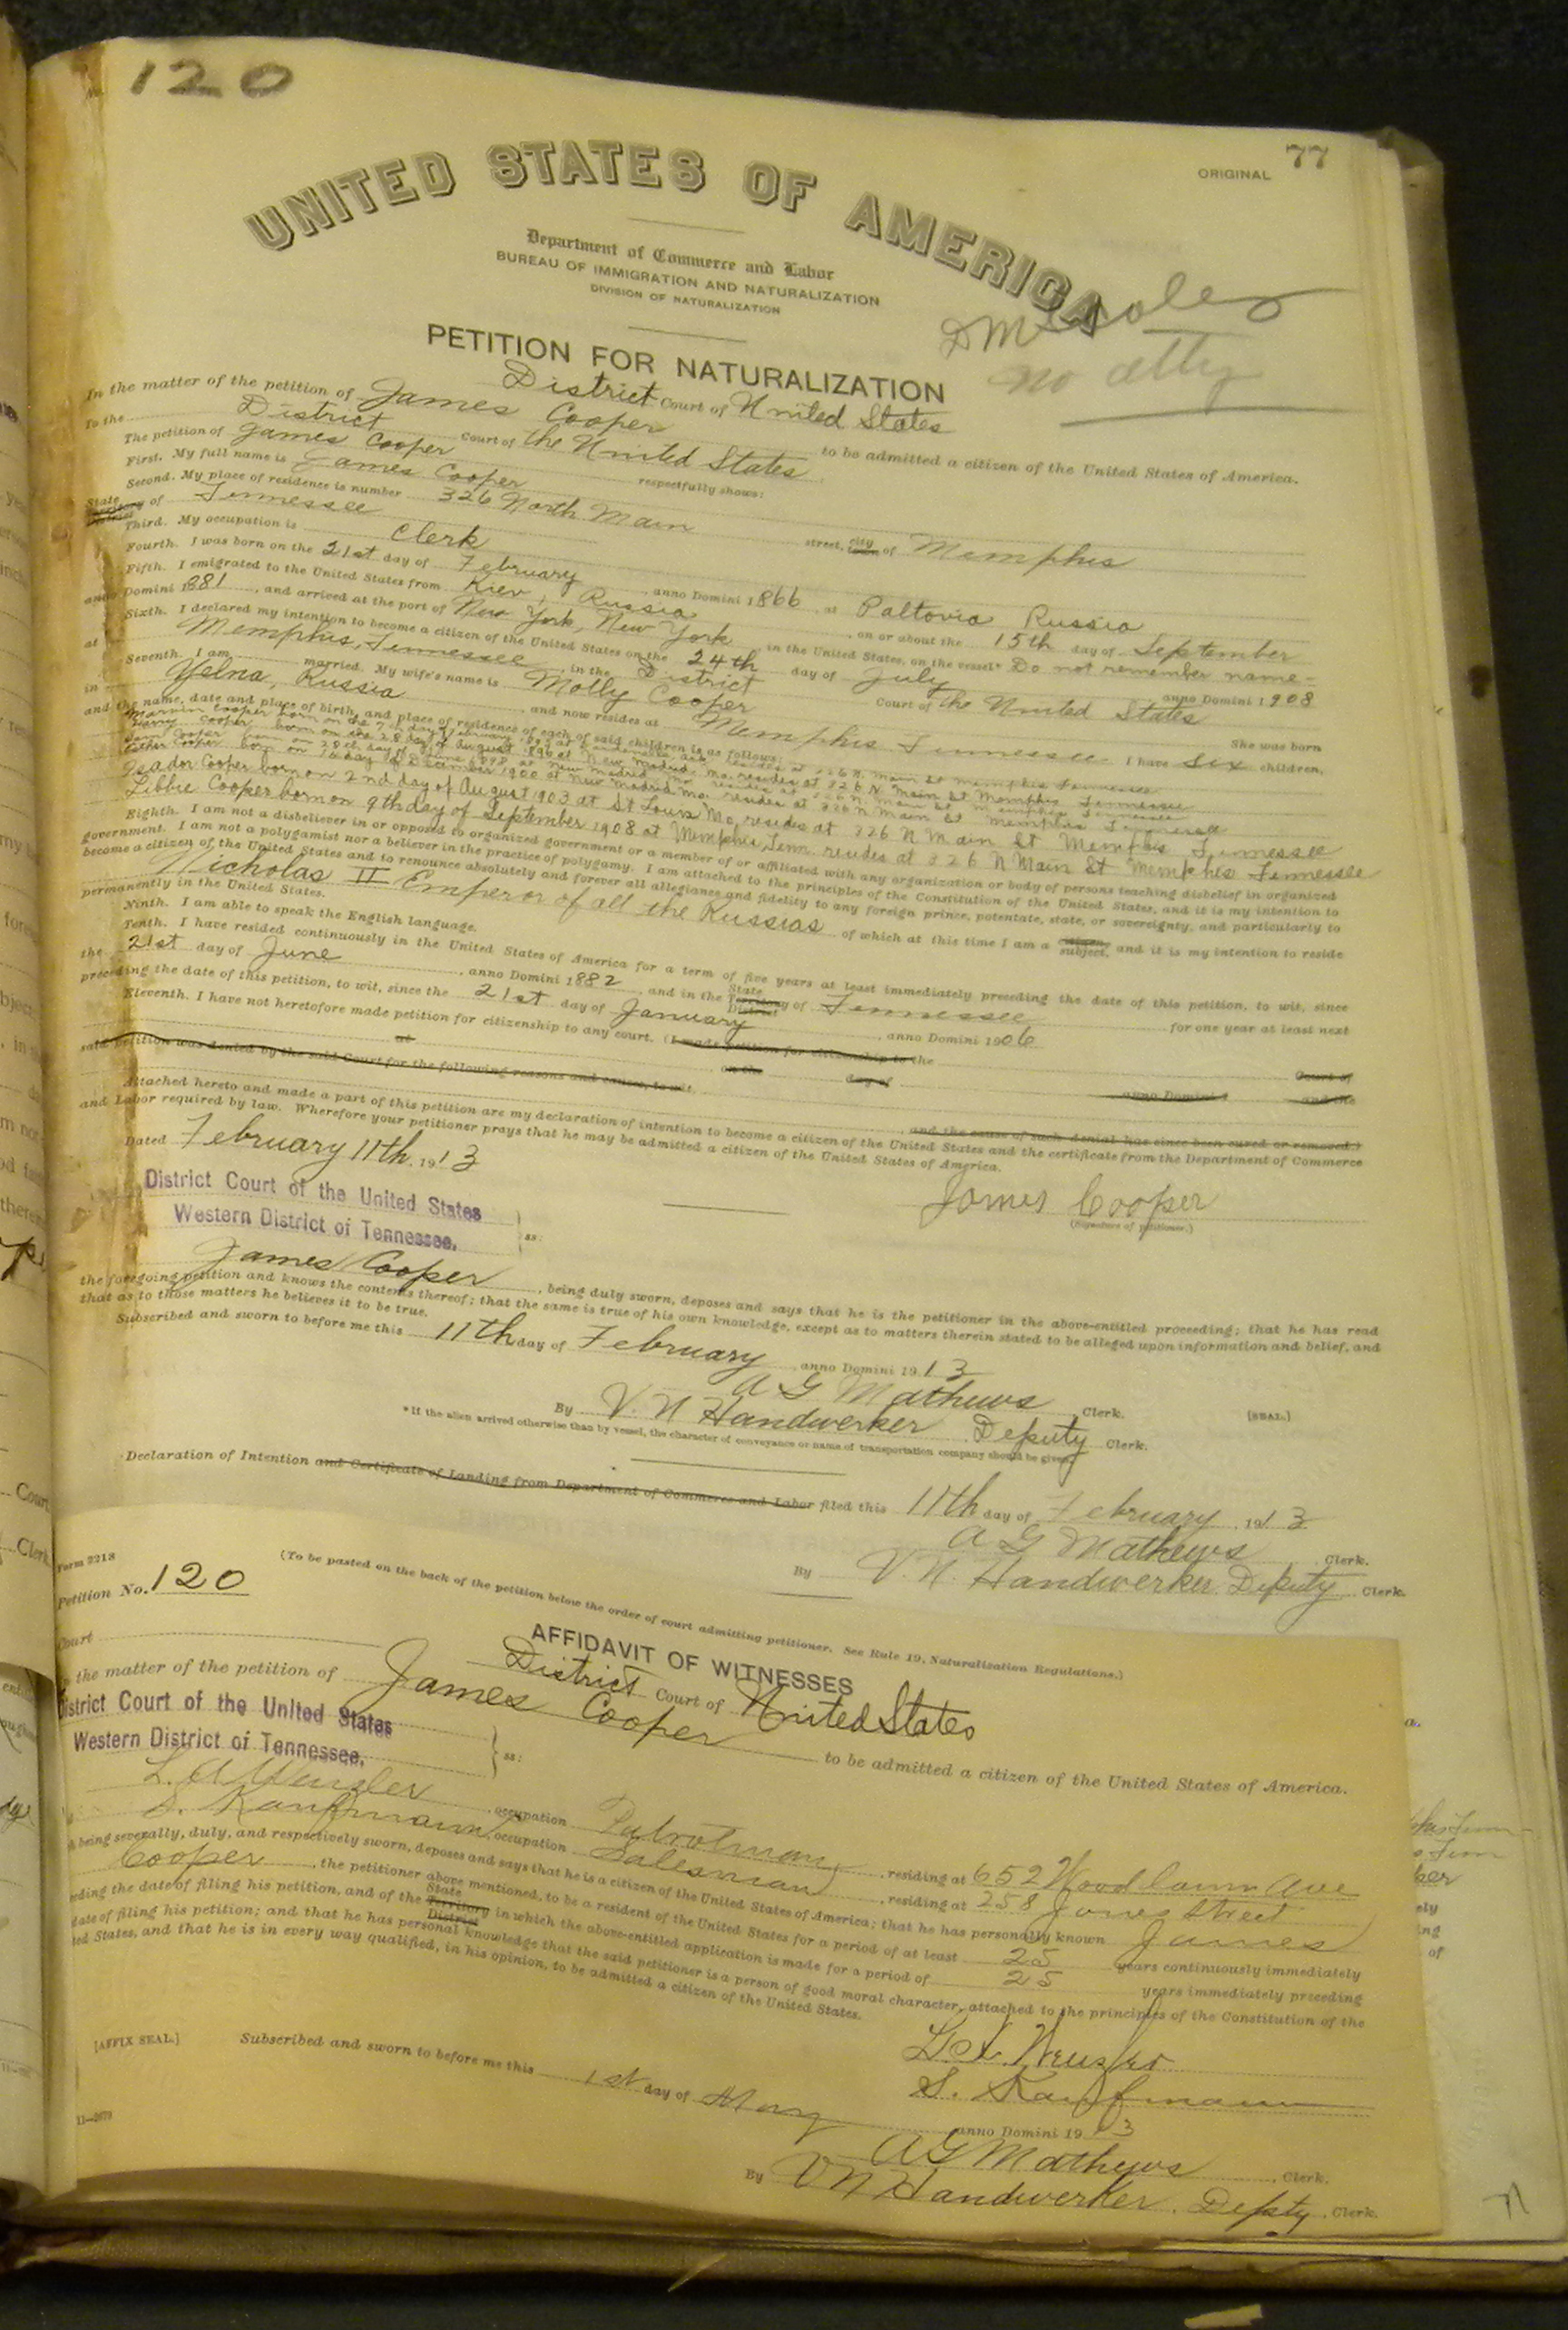 120
77
ORIGINAL
UNITED STATES OF AMERICA
Department of Commerce and Labor
BUREAU OF IMMIGRATION AND NATURALIZATION
DIVISION OF NATURALIZATION
no atty
PETITION FOR NATURALIZATION
District Court of United States
In the matter of the petition of James Cooper to be admitted a citizen of the United States of America.
To the District Court of the United States
The petition of James Cooper respectfully shows:
First. My full name is James Cooper
Second. My place of residence is number 326 North Main street, city of Memphis
State of Tennessee
Third. My occupation is Clerk
Fourth. I was born on the 21st day of February, anno Domini 1866, at Paltovia Russia
Fifth. I emigrated to the United States from Kiev, Russia, on or about the 15th day of September
anno Domini 1881, and arrived at the port of New York, New York, in the United States, on the vessel* Do not remember name-
Sixth. I declared my intention to become a citizen of the United States on the 24th day of July, anno Domini 1908
at Memphis, Tennessee, in the District Court of the United States
Seventh. I am married. My wife's name is Molly Cooper She was born
in Yelna, Russia and now resides at Memphis Tennessee I have six children,
and the name, date and place of birth, and place of residence of each of said children is as follows:
Cooper born on the 7th day of February resides at 326 N. Main St Memphis Tennessee
Harry Cooper born on the 28 day of August 1896 at New Madrid, Mo. resides at 326 N Main St Memphis Tennessee
Sam Cooper born on 28th day of 1898 at New Madrid Mo resides at 326 N Main St Memphis Tennessee
Esther Cooper born on 16 day of December 1900 at New Madrid Mo. resides at 326 N Main St Memphis Tennessee
Isador Cooper born on 2nd day of August 1903 at St Louis Mo, resides at 326 N Main St Memphis Tennessee
Libbie Cooper born on 9th day of September 1908 at Memphis, Tenn resides at 326 N Main St Memphis Tennessee
Eighth. I am not a disbeliever in or opposed to organized government or a member of or affiliated with any organization or body of persons teaching disbelief in organized
government. I am not a polygamist nor a believer in the practice of polygamy. I am attached to the principles of the Constitution of the United States, and it is my intention to
become a citizen of the United States and to renounce absolutely and forever all allegiance and fidelity to any foreign prince, potentate, state, or sovereignty, and particularly to
Nicholas II Emperor of all the Russias of which at this time I am a citizen subject, and it is my intention to reside
permanently in the United States.
Ninth. I am able to speak the English language.
Tenth. I have resided continuously in the United States of America for a term of five years at least immediately preceding the date of this petition, to wit, since
the 21st day of June, anno Domini 1882, and in the State Territory District of Tennessee for one year at least next
preceding the date of this petition, to wit, since the 21st day of January, anno Domini 1906
Eleventh. I have not heretofore made petition for citizenship to any court. (I made petition for citizenship to the Court of
at on the day of anno Domini 1 and the
said petition was denied by the said Court for the following reasons and causes, to wit and the cause of such denial has since been cured or removed.)
Attached hereto and made a part of this petition are my declaration of intention to become a citizen of the United States and the certificate from the Department of Commerce
and Labor required by law. Wherefore your petitioner prays that he may be admitted a citizen of the United States of America.
Dated February 11th, 1913
James Cooper
(Signature of petitioner.)
District Court of the United States
Western District of Tennessee. ss:
James Cooper, being duly sworn, deposes and says that he is the petitioner in the above-entitled proceeding; that he has read
the foregoing petition and knows the contents thereof; that the same is true of his own knowledge, except as to matters therein stated to be alleged upon information and belief, and
that as to those matters he believes it to be true.
Subscribed and sworn to before me this 11th day of February, anno Domini 1913
A G Mathews, Clerk. [SEAL.]
By V. N Handwerker Deputy Clerk.
*If the alien arrived otherwise than by vessel, the character of conveyance or name of transportation company should be given.
Declaration of Intention and Certificate of Landing from Department of Commerce and Labor filed this 11th day of February, 1913
A G Mathews, Clerk.
By V. N. Handwerker Deputy Clerk.
Form 2218
(To be pasted on the back of the petition below the order of court admitting petitioner. See Rule 19, Naturalization Regulations.)
Petition No. 120
AFFIDAVIT OF WITNESSES
Court
District Court of United States
In the matter of the petition of James Cooper to be admitted a citizen of the United States of America.
District Court of the United States
Western District of Tennessee. ss:
occupation Patrolman, residing at 652 Woodlawn Ave
S. Kaufmann, occupation Salesman, residing at 258 Jones Street
being severally, duly, and respectively sworn, deposes and says that he is a citizen of the United States of America; that he has personally known James
Cooper, the petitioner above mentioned, to be a resident of the United States for a period of at least 25 years continuously immediately
eding the date of filing his petition, and of the State Territory District in which the above-entitled application is made for a period of 25 years immediately preceding
date of filing his petition; and that he has personal knowledge that the said petitioner is a person of good moral character, attached to the principles of the Constitution of the
ted States, and that he is in every way qualified, in his opinion, to be admitted a citizen of the United States.
S. Kaufmann
[AFFIX SEAL.] Subscribed and sworn to before me this 1st day of May anno Domini 1913
A G Mathews, Clerk.
By V N Handwerker, Depty Clerk.